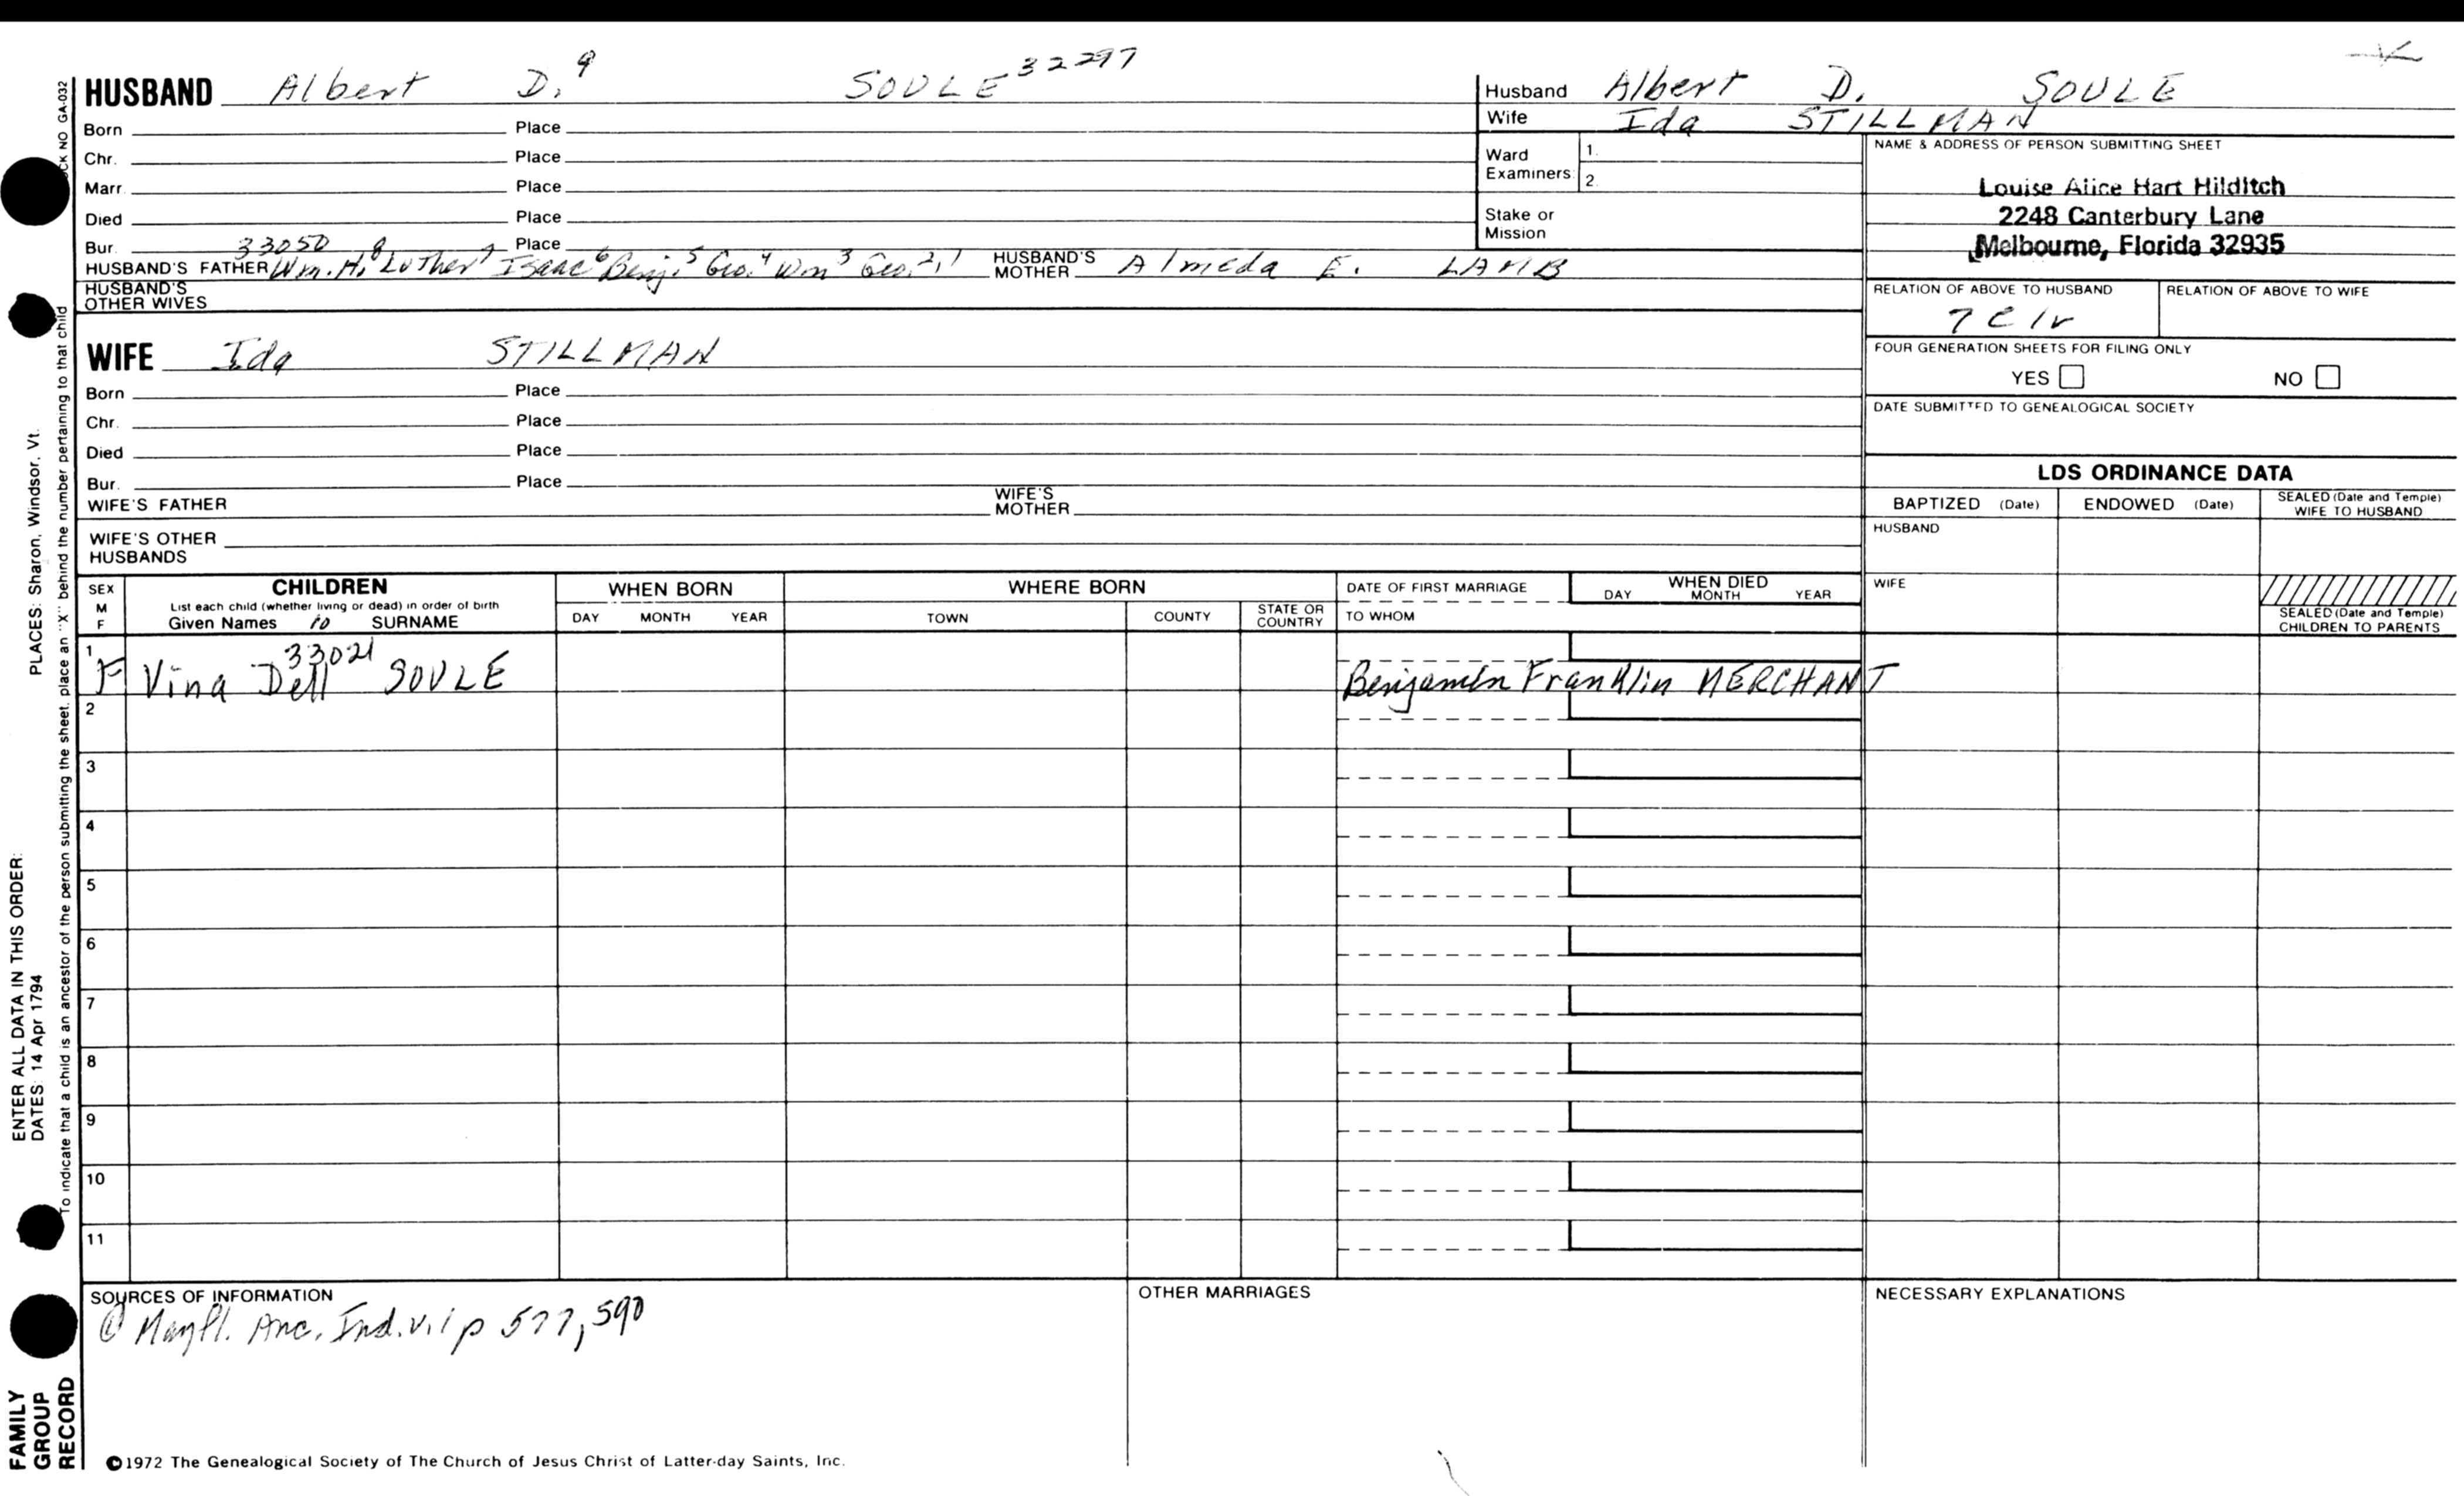 HUSBAND Albert D.⁹ SOULE 32297
Born Place
Chr. Place
Marr. Place
Died Place
Bur. Place
33050
HUSBAND'S FATHER Wm. H.⁸ Luther⁷ Isaac⁶ Benj.⁵ Geo.⁴ Wm³ Geo.²,¹ HUSBAND'S MOTHER Almeda E. LAMB
HUSBAND'S OTHER WIVES
WIFE Ida STILLMAN
Born Place
Chr. Place
Died Place
Bur. Place
WIFE'S FATHER WIFE'S MOTHER
WIFE'S OTHER HUSBANDS
Husband Albert D. SOULE
Wife Ida STILLMAN
Ward Examiners: 1.
2.
Stake or Mission
NAME & ADDRESS OF PERSON SUBMITTING SHEET
Louise Alice Hart Hilditch
2248 Canterbury Lane
Melbourne, Florida 32935
RELATION OF ABOVE TO HUSBAND RELATION OF ABOVE TO WIFE
7 C 1r
FOUR GENERATION SHEETS FOR FILING ONLY
YES NO
DATE SUBMITTED TO GENEALOGICAL SOCIETY
LDS ORDINANCE DATA
BAPTIZED (Date) ENDOWED (Date) SEALED (Date and Temple) WIFE TO HUSBAND
HUSBAND
WIFE
SEALED (Date and Temple) CHILDREN TO PARENTS
SEX M F
CHILDREN
List each child (whether living or dead) in order of birth
Given Names 10 SURNAME
WHEN BORN
DAY MONTH YEAR
WHERE BORN
TOWN COUNTY STATE OR COUNTRY
DATE OF FIRST MARRIAGE
TO WHOM
WHEN DIED
DAY MONTH YEAR
33021
1 F Vina Dell SOULE Benjamin Franklin MERCHANT
2
3
4
5
6
7
8
9
10
11
SOURCES OF INFORMATION
① Mayfl. Anc. Ind. v.1 p 577, 590
OTHER MARRIAGES
NECESSARY EXPLANATIONS
©1972 The Genealogical Society of The Church of Jesus Christ of Latter-day Saints, Inc.
FAMILY GROUP RECORD
ENTER ALL DATA IN THIS ORDER:
DATES: 14 Apr 1794
PLACES: Sharon, Windsor, Vt.
To indicate that a child is an ancestor of the person submitting the sheet, place an "X" behind the number pertaining to that child
NO GA-032